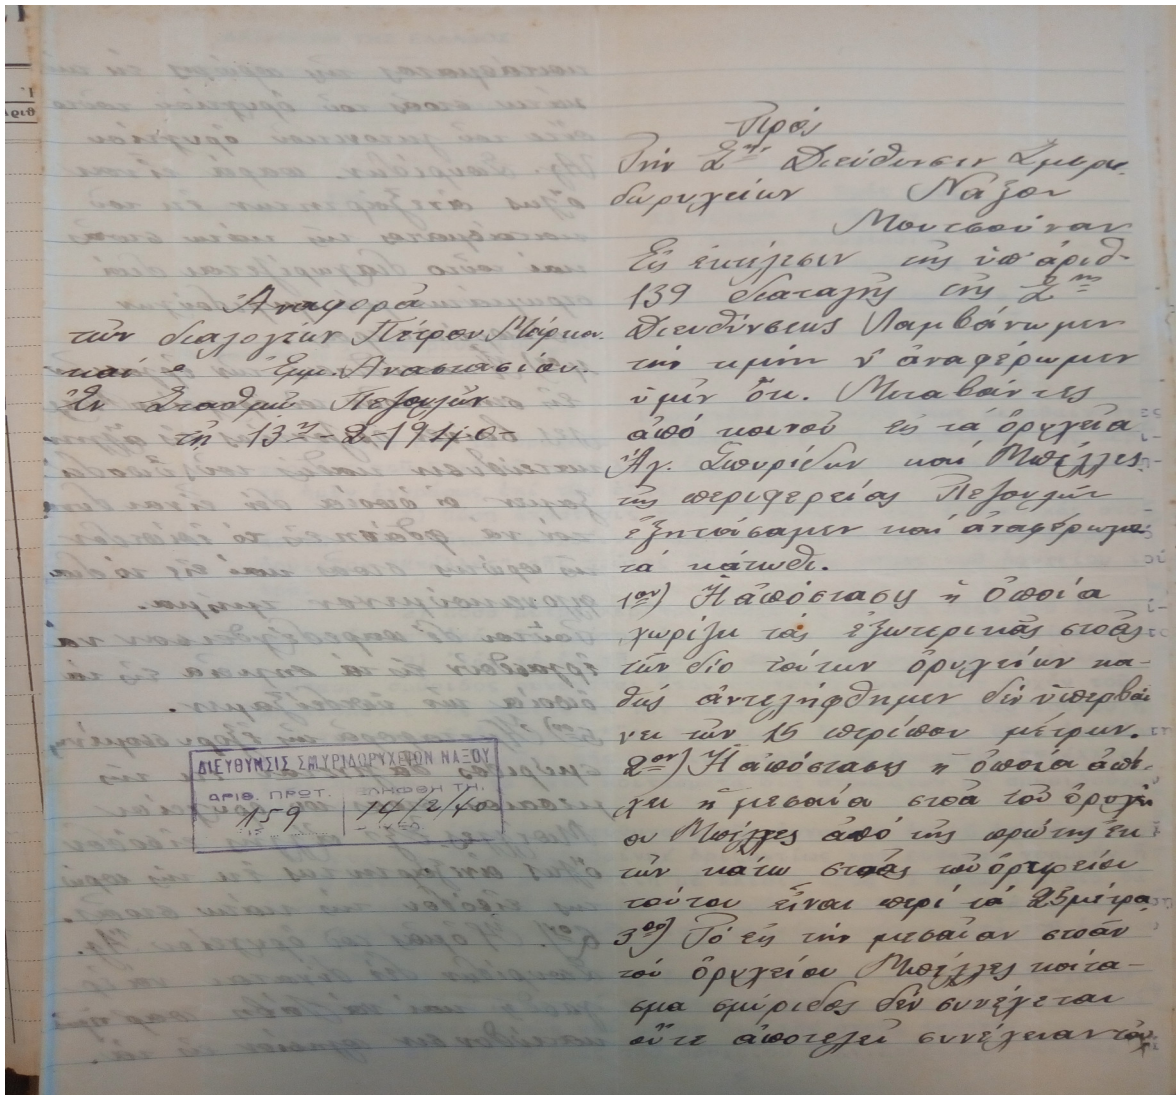 Πρός
Τήν Σ Διεύθυνσιν Σμυρι-
δωρυχείων Νάξου
Μουτσούναν
Ἀναφορά
τῶν διαλογέων Πέτρου Μάρκου
καί Ἐμμ. Ἀναστασίου.
Ἐν Σταθμῷ Πεζουλῶν
τῇ 13ῃ-2-1940
ΔΙΕΥΘΥΝΣΙΣ ΣΜΥΡΙΔΩΡΥΧΕΙΩΝ ΝΑΞΟΥ
ΑΡΙΘ. ΠΡΩΤ. ΕΛΗΦΘΗ ΤΗ.
159 14/2/40
Εἰς ἐκτέλεσιν τῆς ὑπ' ἀριθ.
139 διαταγῆς τῆς Σ
Διευθύνσεως Λαμβάνωμεν
τήν τιμήν ν' ἀναφέρωμεν
ὑμῖν ὅτι. Μεταβάντες
ἀπό κοινοῦ εἰς τά ὀρυχεῖα
Ἁγ. Σπυρίδων καί Μπέλλες
τῆς περιφερείας Πεζουλῶν
ἐξητάσαμεν καί ἀναφέρωμεν
τά κάτωθι.
1ον) Ἡ ἀπόστασις ἡ ὁποία
χωρίζει τάς ἐξωτερικάς στοάς
τῶν δύο τούτων ὀρυχείων κα-
θώς ἀντελήφθημεν δέν ὑπερβαί
νει τῶν 15 περίπου μέτρων.
2ον) Ἡ ἀπόστασις ἡ ὁποία ἀπέ-
χει ἡ μεσαία στοά τοῦ ὀρυχεί
ου Μπέλλες ἀπό τῆς πρώτης ἐκ
τῶν κάτω στοάς τοῦ ὀρυχείου
τούτου εἶναι περί τά 25 μέτρα.
3ον) Τό εἰς τήν μεσαίαν στοάν
τοῦ ὀρυχείου Μπέλλες κοίτα-
σμα σμύριδος δέν συνέχεται
οὔτε ἀποτελεῖ συνέχειαν τοῦ